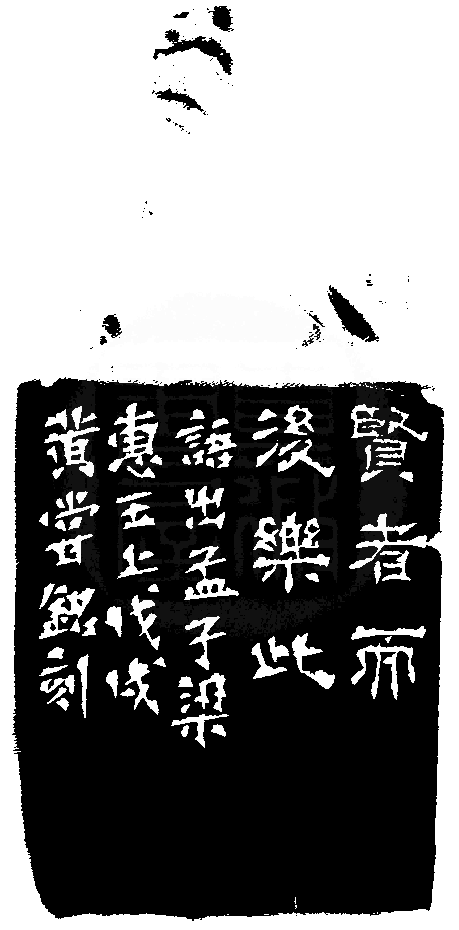 賢者而
後樂此
語出孟子梁
惠王上戊戌
黃嘗銘刻